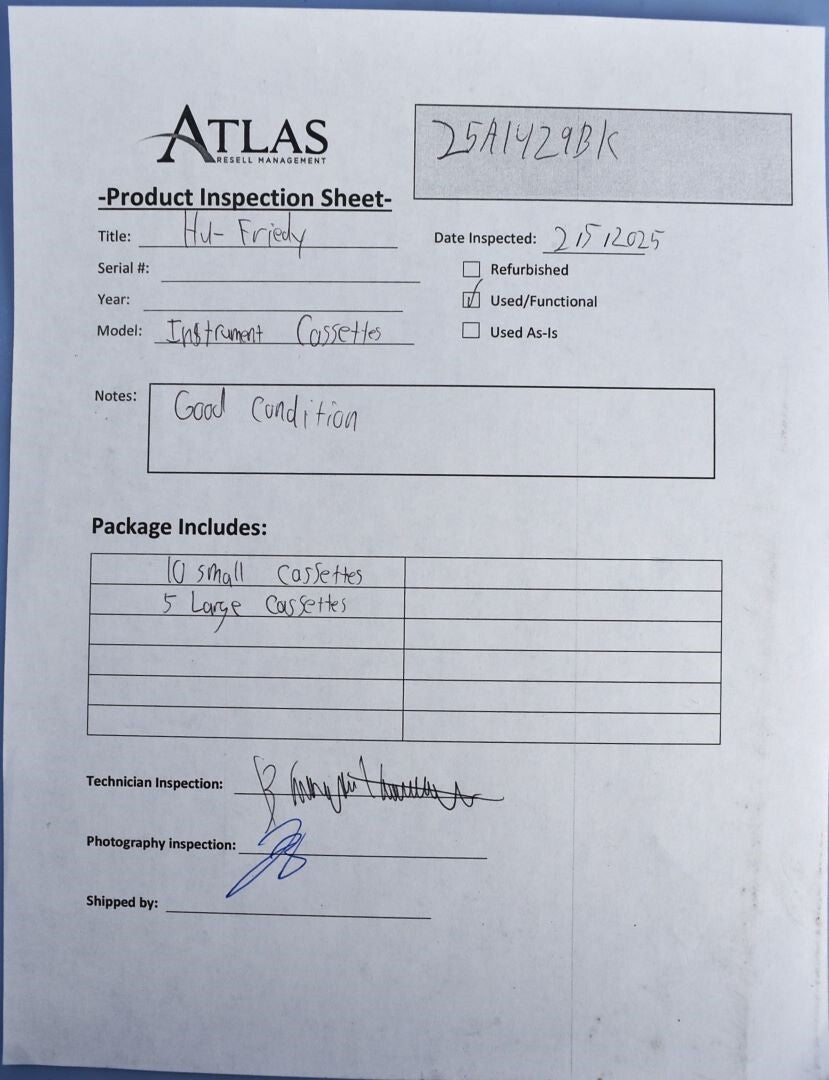 ATLAS
RESELL MANAGEMENT
25A1429BK
-Product Inspection Sheet-
Title: Hu-Friedy
Date Inspected: 2/5/2025
Serial #:
Refurbished
Year:
Used/Functional
Model: Instrument Cassettes
Used As-Is
Notes: Good Condition
Package Includes:
10 small Cassettes
5 Large Cassettes
Technician Inspection:
Photography inspection:
Shipped by: